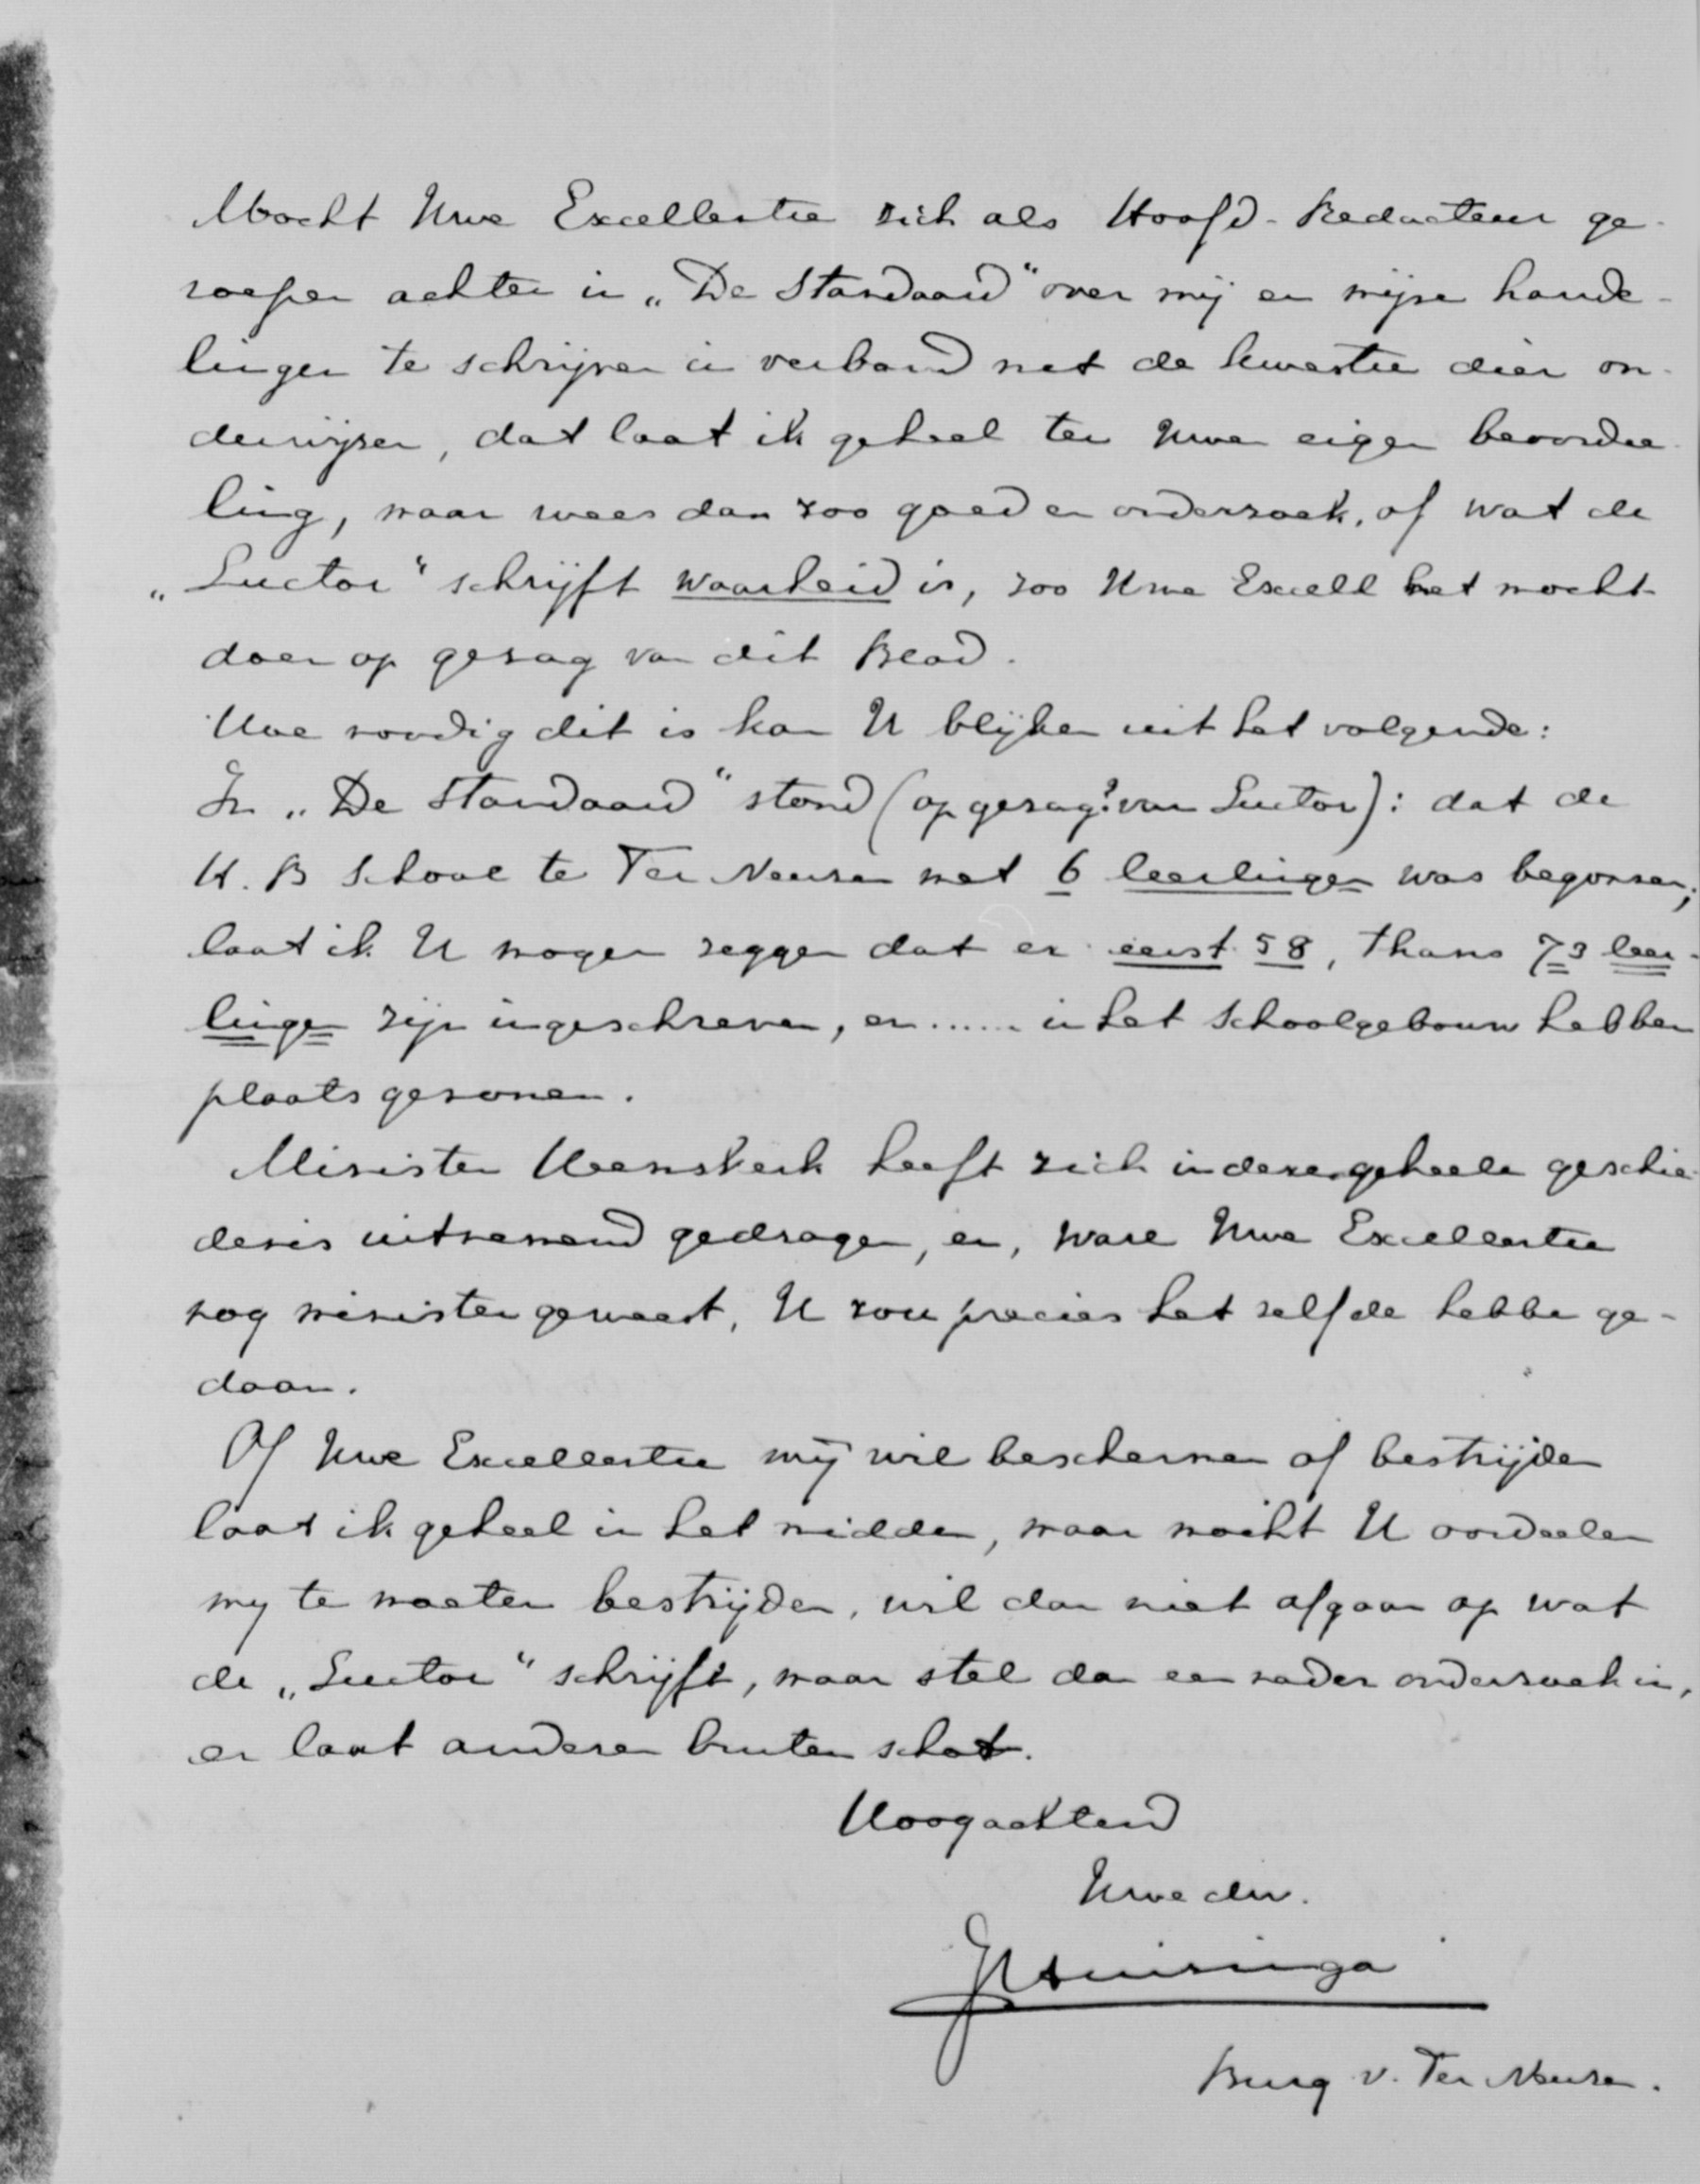 Mocht Uwe Excellentie zich als Hoofd-Redacteur ge-
roepen achten in „De Standaard" over mij en mijne hande-
lingen te schrijven in verband met de kwestie dier on-
derwijzer, dat laat ik geheel ter Uwer eigen beoordee-
ling, maar wees dan zoo goed en onderzoek, of wat de
„Luctor" schrijft waarheid is, zoo Uwe Excell het mocht
doen op gezag van dit Blad.
Hoe noodig dit is kan U blijken uit het volgende:
In „De Standaard" stond (op gezag? van Luctor): dat de
H. B School te Ter Neuzen met 6 leerlingen was begonnen;
laat ik U mogen zeggen dat er eerst 58, thans 73 leer-
lingen zijn ingeschreven, en...... in het schoolgebouw hebben
plaats genomen.
Minister Heemskerk heeft zich in deze geheele geschie-
denis uitnemend gedragen, en, ware Uwe Excellentie
nog minister geweest, U zou precies het zelfde hebben ge-
daan.
Of Uwe Excellentie mij wil beschermen of bestrijden
laat ik geheel in het midden, maar mocht U oordeelen
my te moeten bestrijden, wil dan niet afgaan op wat
de „Luctor" schrijft, maar stel dan een nader onderzoek in,
en laat anderen buiten schot.
Hoogachtend
Uwe dw.
J Huizinga
Burg v. Ter Neuzen.